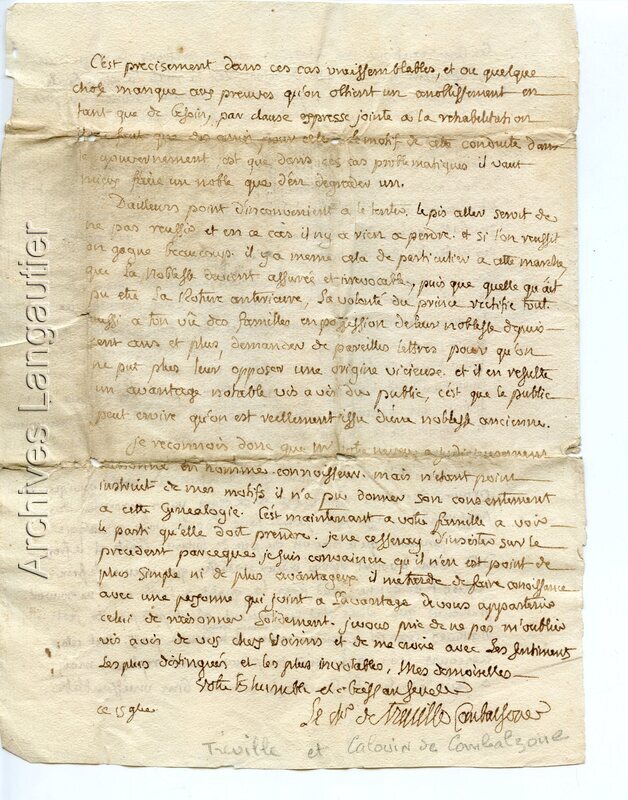 C'est precisement dans ces cas vraissemblables, et ou quelque
chose manque aux preuves qu'on obtient un anoblissement en
tant que de besoin, par clause expresse jointe a la rehabilitation
motif de cette conduite dans
le gouvernement est que dans ces cas problematiques il vaut
mieux faire un noble que d'en degrader un.
Dailleurs point d'inconvenient a le tenter, le pis aller seroit de
ne pas reussir et en ce cas il ny a rien a perdre. et si l'on reussit
on gagne beaucoup. il y a meme cela de particulier a cette marche,
que La noblesse devient assurée et irrevocable, puis que quelle qu'ait
pu etre La Roture anterieure, La volonté du prince rectifie tout.
aussi a t'on vû des familles en possession de leur noblesse depuis
cent ans et plus, demander de pareilles lettres pour qu'on
ne put plus leur opposer une origine vicieuse. et il en resulte
un avantage notable vis a vis du public, c'est que le public
peut croire qu'on est reellement issu d'une noblesse ancienne.
Je reconnois donc que
en homme connoisseur. mais n'etant point
instruit de mes motifs il n'a pu donner son consentement
a cette Genealogie. C'est maintenant a votre famille a voir
le parti qu'elle doit prendre. je ne cesseray d'insister sur le
precedent parceque je suis convaincu qu'il n'en est point de
plus simple ni de plus avantageux. il me tarde de faire conoissance
avec une personne qui joint a L'avantage de vous appartenir
celui de raisonner solidement. je vous prie de ne pas m'oublier
vis a vis de vos chers voisins et de me croire avec Les sentiments
Les plus distingués et les plus inviolables, Mesdemoiselles
Votre tres humble et obeissant serviteur
ce 15
Le de Treville Combatzone
Treville et Calouin de Combalzone
Archives Langautier